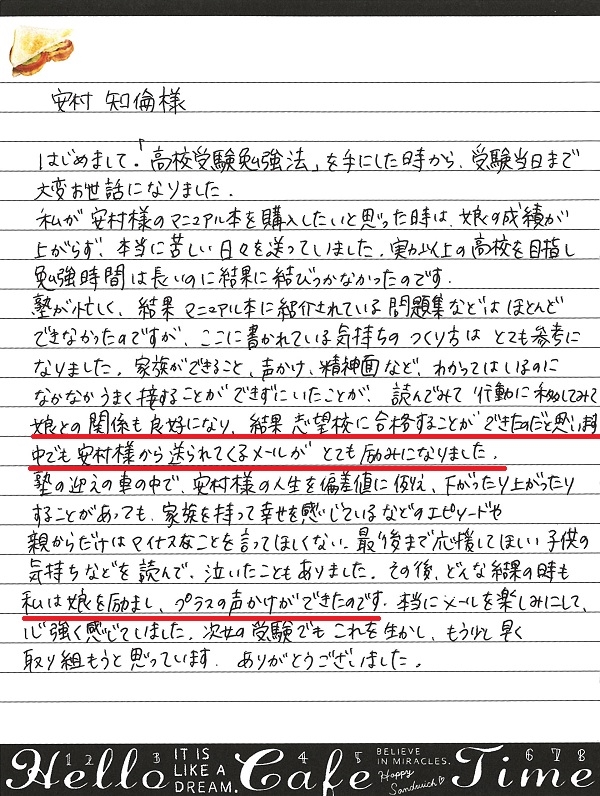 安村 知倫様
はじめまして.「高校受験勉強法」を手にした時から、受験当日まで
大変お世話になりました.
私が安村様のマニュアル本を購入したいと思った時は、娘の成績が
上がらず、本当に苦しい日々を送っていました. 実力以上の高校を目指し
勉強時間は長いのに結果に結びつかなかったのです.
塾が忙しく、結果マニュアル本に紹介されている問題集などはほとんど
できなかったのですが、ここに書かれている気持ちのつくり方はとても参考に
なりました. 家族ができること、声かけ、精神面など、わかってはいるのに
なかなかうまく接することができずにいたことが、読んでみて行動に移してみて
娘との関係も良好になり、結果志望校に合格することができたのだと思います
中でも安村様から送られてくるメールがとても励みになりました.
塾の迎えの車の中で、安村様の人生を偏差値に例え、下がったり上がったり
することがあっても、家族を持って幸せを感じているなどのエピソードや
親からだけはマイナスなことを言ってほしくない. 最後まで応援してほしい子供の
気持ちなどを読んで、泣いたこともありました. その後、どんな結果の時も
私は娘を励まし、プラスの声かけができたのです. 本当にメールを楽しみにして、
心強く感じていました. 次女の受験でもこれを生かし、もう少し早く
取り組もうと思っています. ありがとうございました.
1 2 3 4 5 6 7 8
Hello IT IS LIKE A DREAM. Cafe BELIEVE IN MIRACLES. Happy Sandwich Time